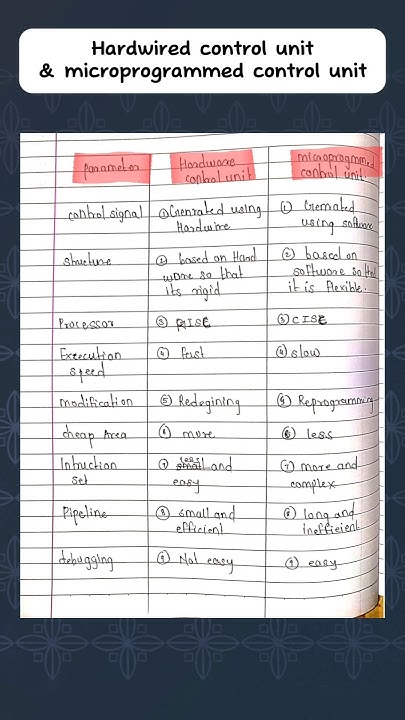 Hardwired control unit
& microprogrammed control unit
Parameter
Hardware
control unit
microprogmmed
control unit.
control signal
① Genrated using
Hardwire
① Gernated
using software
structure
② based on Hard
ware so that
its rigid
② based on
software so that
it is flexible.
Processor
③ RISC
③ CISC
Execution
speed
④ fast
④ slow
modification
⑤ Redegining
⑤ Reprogramming
cheap Area
⑥ more
⑥ less
Intruction
set
⑦ less and
easy
⑦ more and
complex
Pipeline
⑧ small and
efficient
⑧ long and
inefficient
debugging
⑨ Not easy
⑨ easy